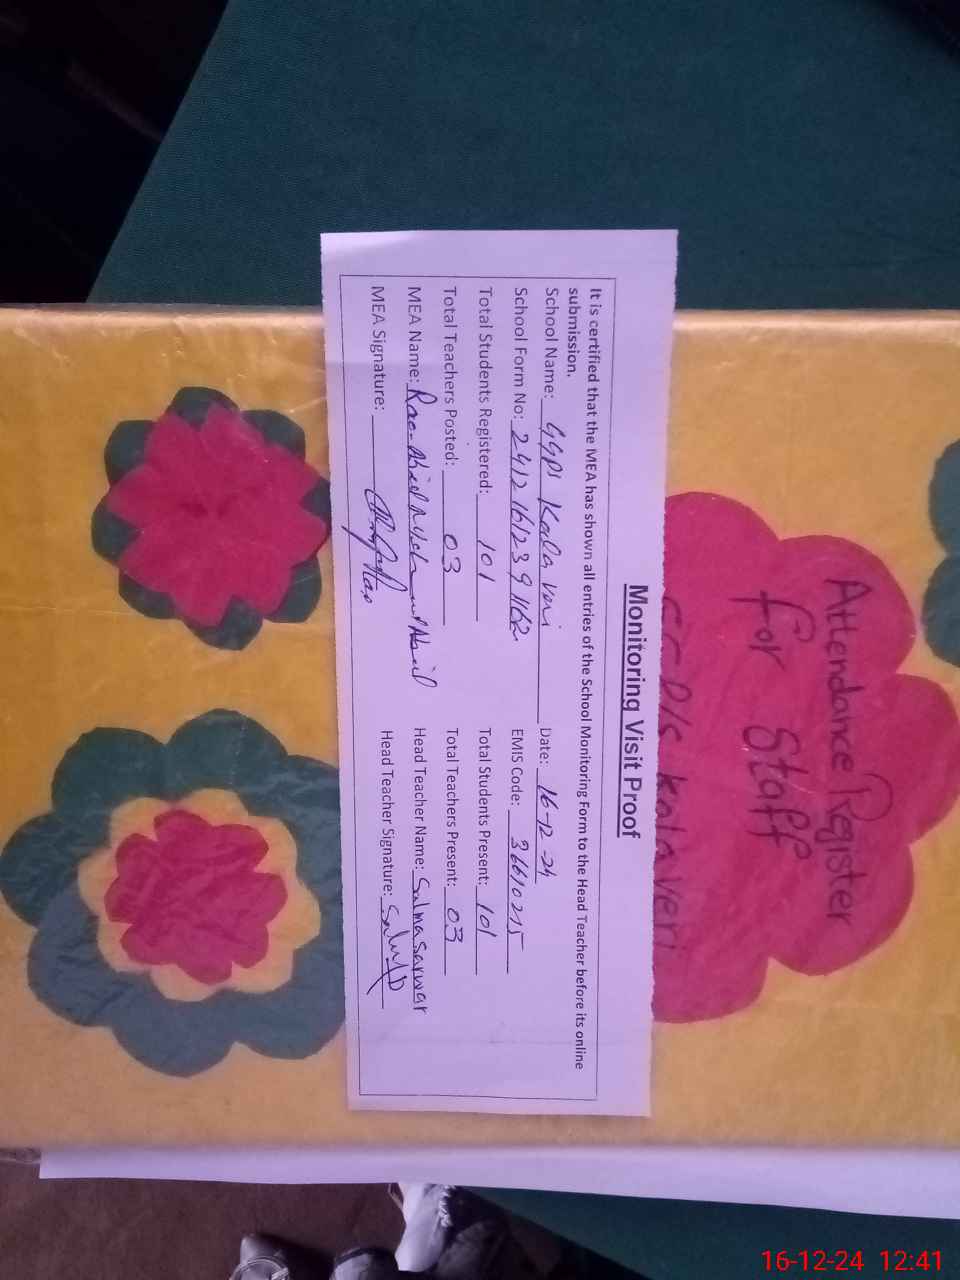 Attendance Register
for Staff
Kala veri
Monitoring Visit Proof
It is certified that the MEA has shown all entries of the School Monitoring Form to the Head Teacher before its online
submission.
School Name: GGPS Kala veri Date: 16-12-24
School Form No: 24121612391162 EMIS Code: 36610215
Total Students Registered: 101 Total Students Present: 101
Total Teachers Posted: 03 Total Teachers Present: 03
MEA Name: Rao Head Teacher Name: Salma Sarwar
MEA Signature: Head Teacher Signature:
16-12-24 12:41